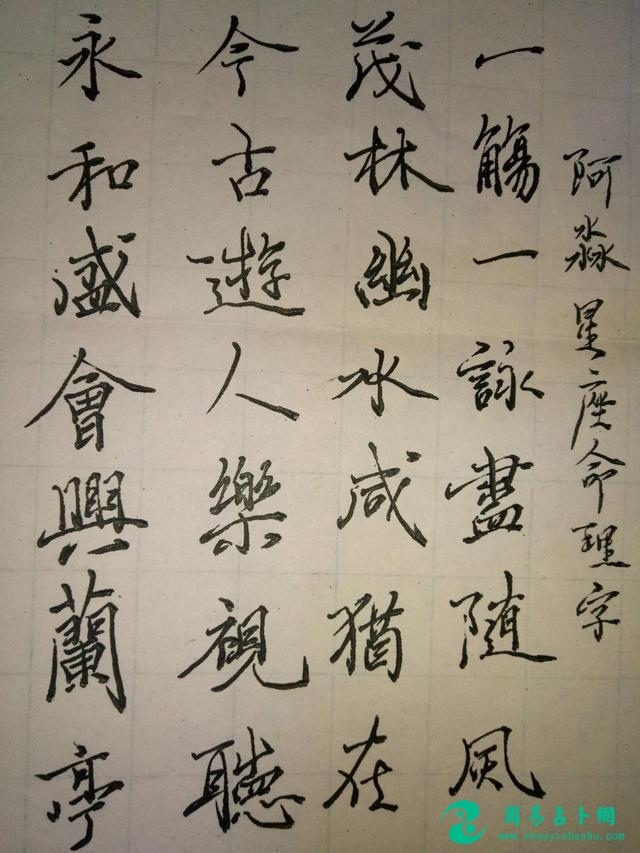 永和盛會興蘭亭
今古遊人樂視聽
茂林幽水咸猶在
一觴一詠盡随風
阿淼星座命理字
周易占卜網
www.zhouyizhanbu.com